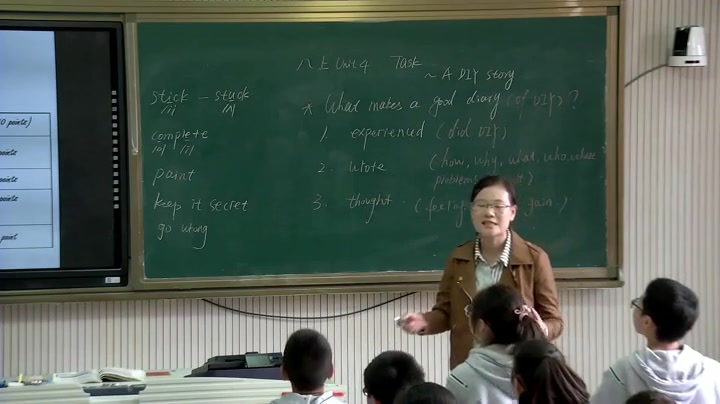 0 points)
points
points
points
point
八上 Unit 4 Task
~ A DIY story
stick - stuck
/ɪ/ /ʌ/
complete
/ə/ /iː/
paint
keep it secret
go wrong
* What makes a good diary (of DIY)?
1. experienced (did DIY)
2. wrote (how, why, what, who, where
problem
3. thought (feeling gain.)